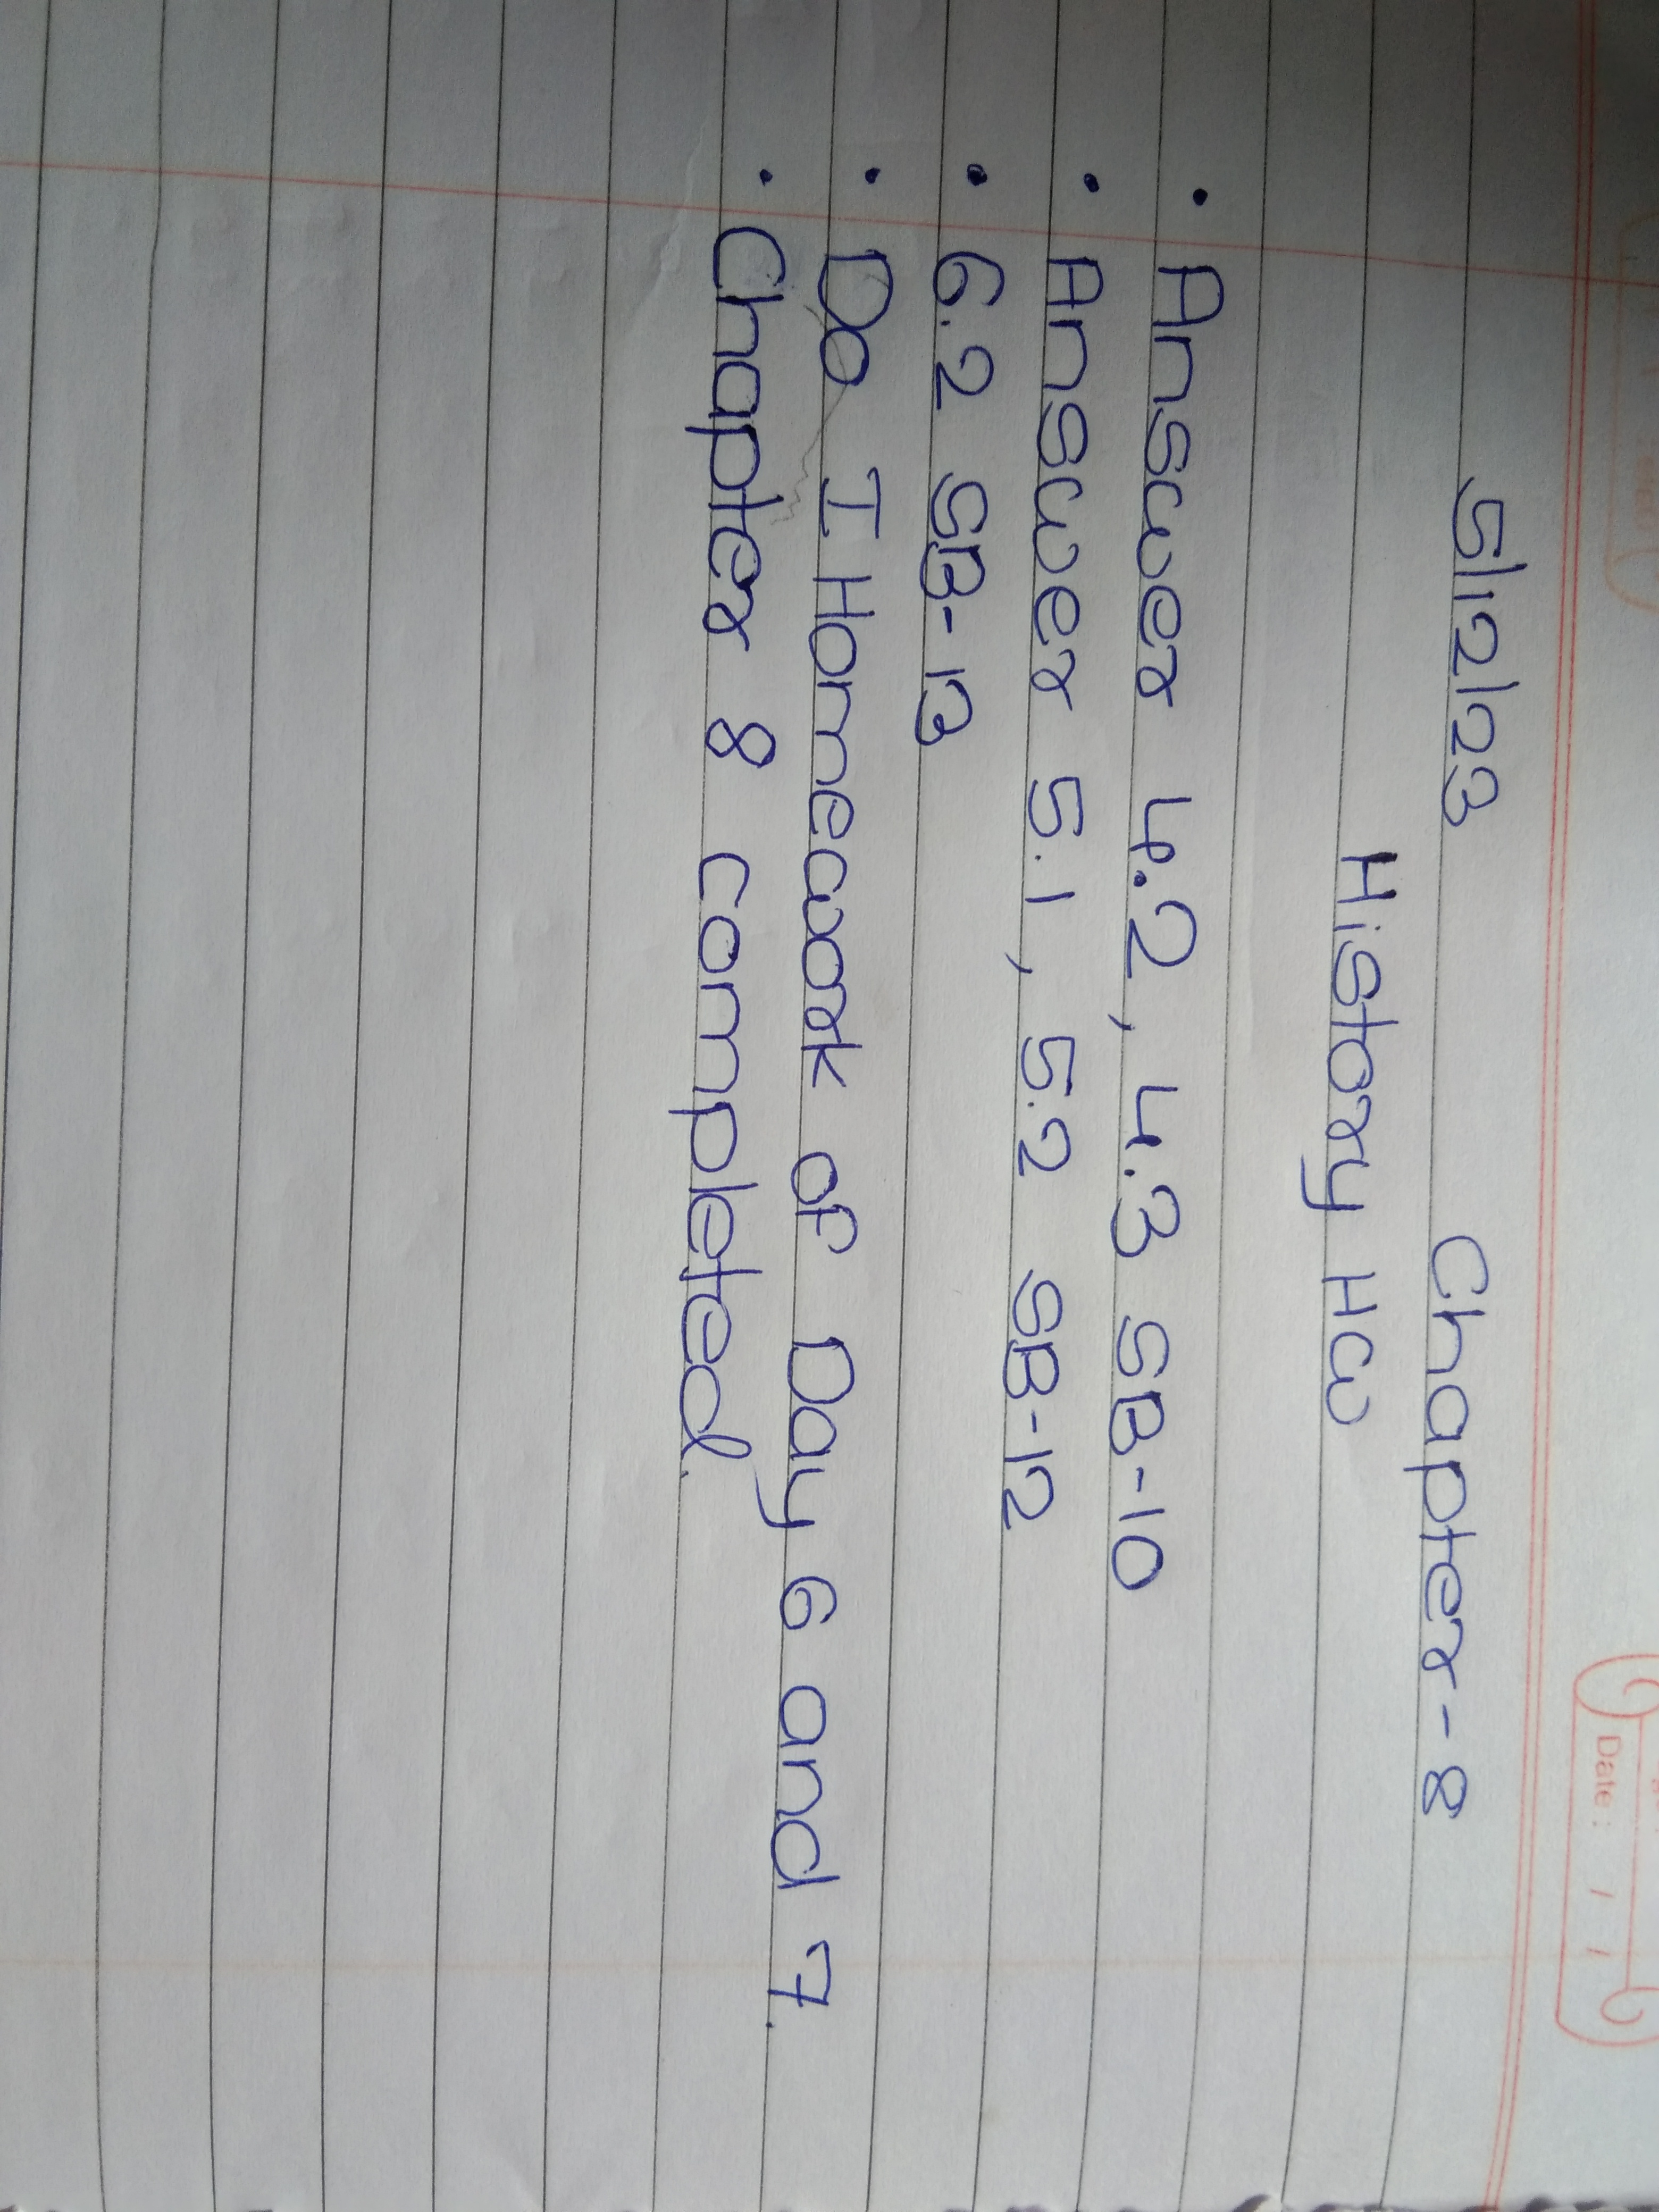 Date : / /
5/12/23 Chapter-8
History HW
• Answer 4.2, 4.3 SB-10
• Answer 5.1, 5.2 SB-12
• 6.2 SB-13
• Do I Homework of Day 6 and 7.
• Chapter 8 completed.